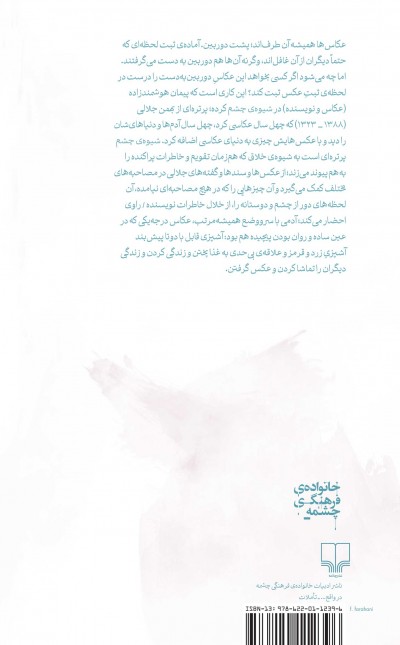 عکاس‌ها همیشه آن طرف‌اند؛ پشت دوربین. آماده‌ی ثبت لحظه‌ای که
حتماً دیگران از آن غافل‌اند، وگرنه آن‌ها هم دوربین به دست می‌گرفتند.
اما چه می‌شود اگر کسی بخواهد این عکاسِ دوربین‌به‌دست را درست در
لحظه‌ی ثبتِ عکس ثبت کند؟ این کاری است که پیمان هوشمندزاده
(عکاس و نویسنده) در شیوه‌ی چشم کرده؛ پرتره‌ای از بهمن جلالی
(۱۳۸۸ ــ ۱۳۲۳) که چهل سال عکاسی کرد، چهل سال آدم‌ها و دنیاهای‌شان
را دید و با عکس‌هایش چیزی به دنیای عکاسی اضافه کرد. شیوه‌ی چشم
پرتره‌ای است به شیوه‌ی خلاق که هم‌زمان تقویم و خاطرات پراکنده را
به هم پیوند می‌زند؛ از عکس‌ها و سندها و گفته‌های جلالی در مصاحبه‌های
مختلف کمک می‌گیرد و آن چیزهایی را که در هیچ مصاحبه‌ای نیامده، آن
لحظه‌های دور از چشم و دوستانه را، از خلال خاطرات نویسنده / راوی
احضار می‌کند؛ آدمی با سر و وضع همیشه مرتب، عکاس درجه‌یکی که در
عین ساده و روان بودن پیچیده هم بود، آشپزی قابل با دو تا پیش‌بند
آشپزیِ زرد و قرمز و علاقه‌ی بی‌حدی به غذا پختن و زندگی کردن و زندگی
دیگران را تماشا کردن و عکس گرفتن.
خانواده‌ی
فرهنگی
چشمه
ناشر ادبیات خانواده‌ی فرهنگی چشمه
در واقع... ــ تأملات
ISBN-13: 978-622-01-1239-6